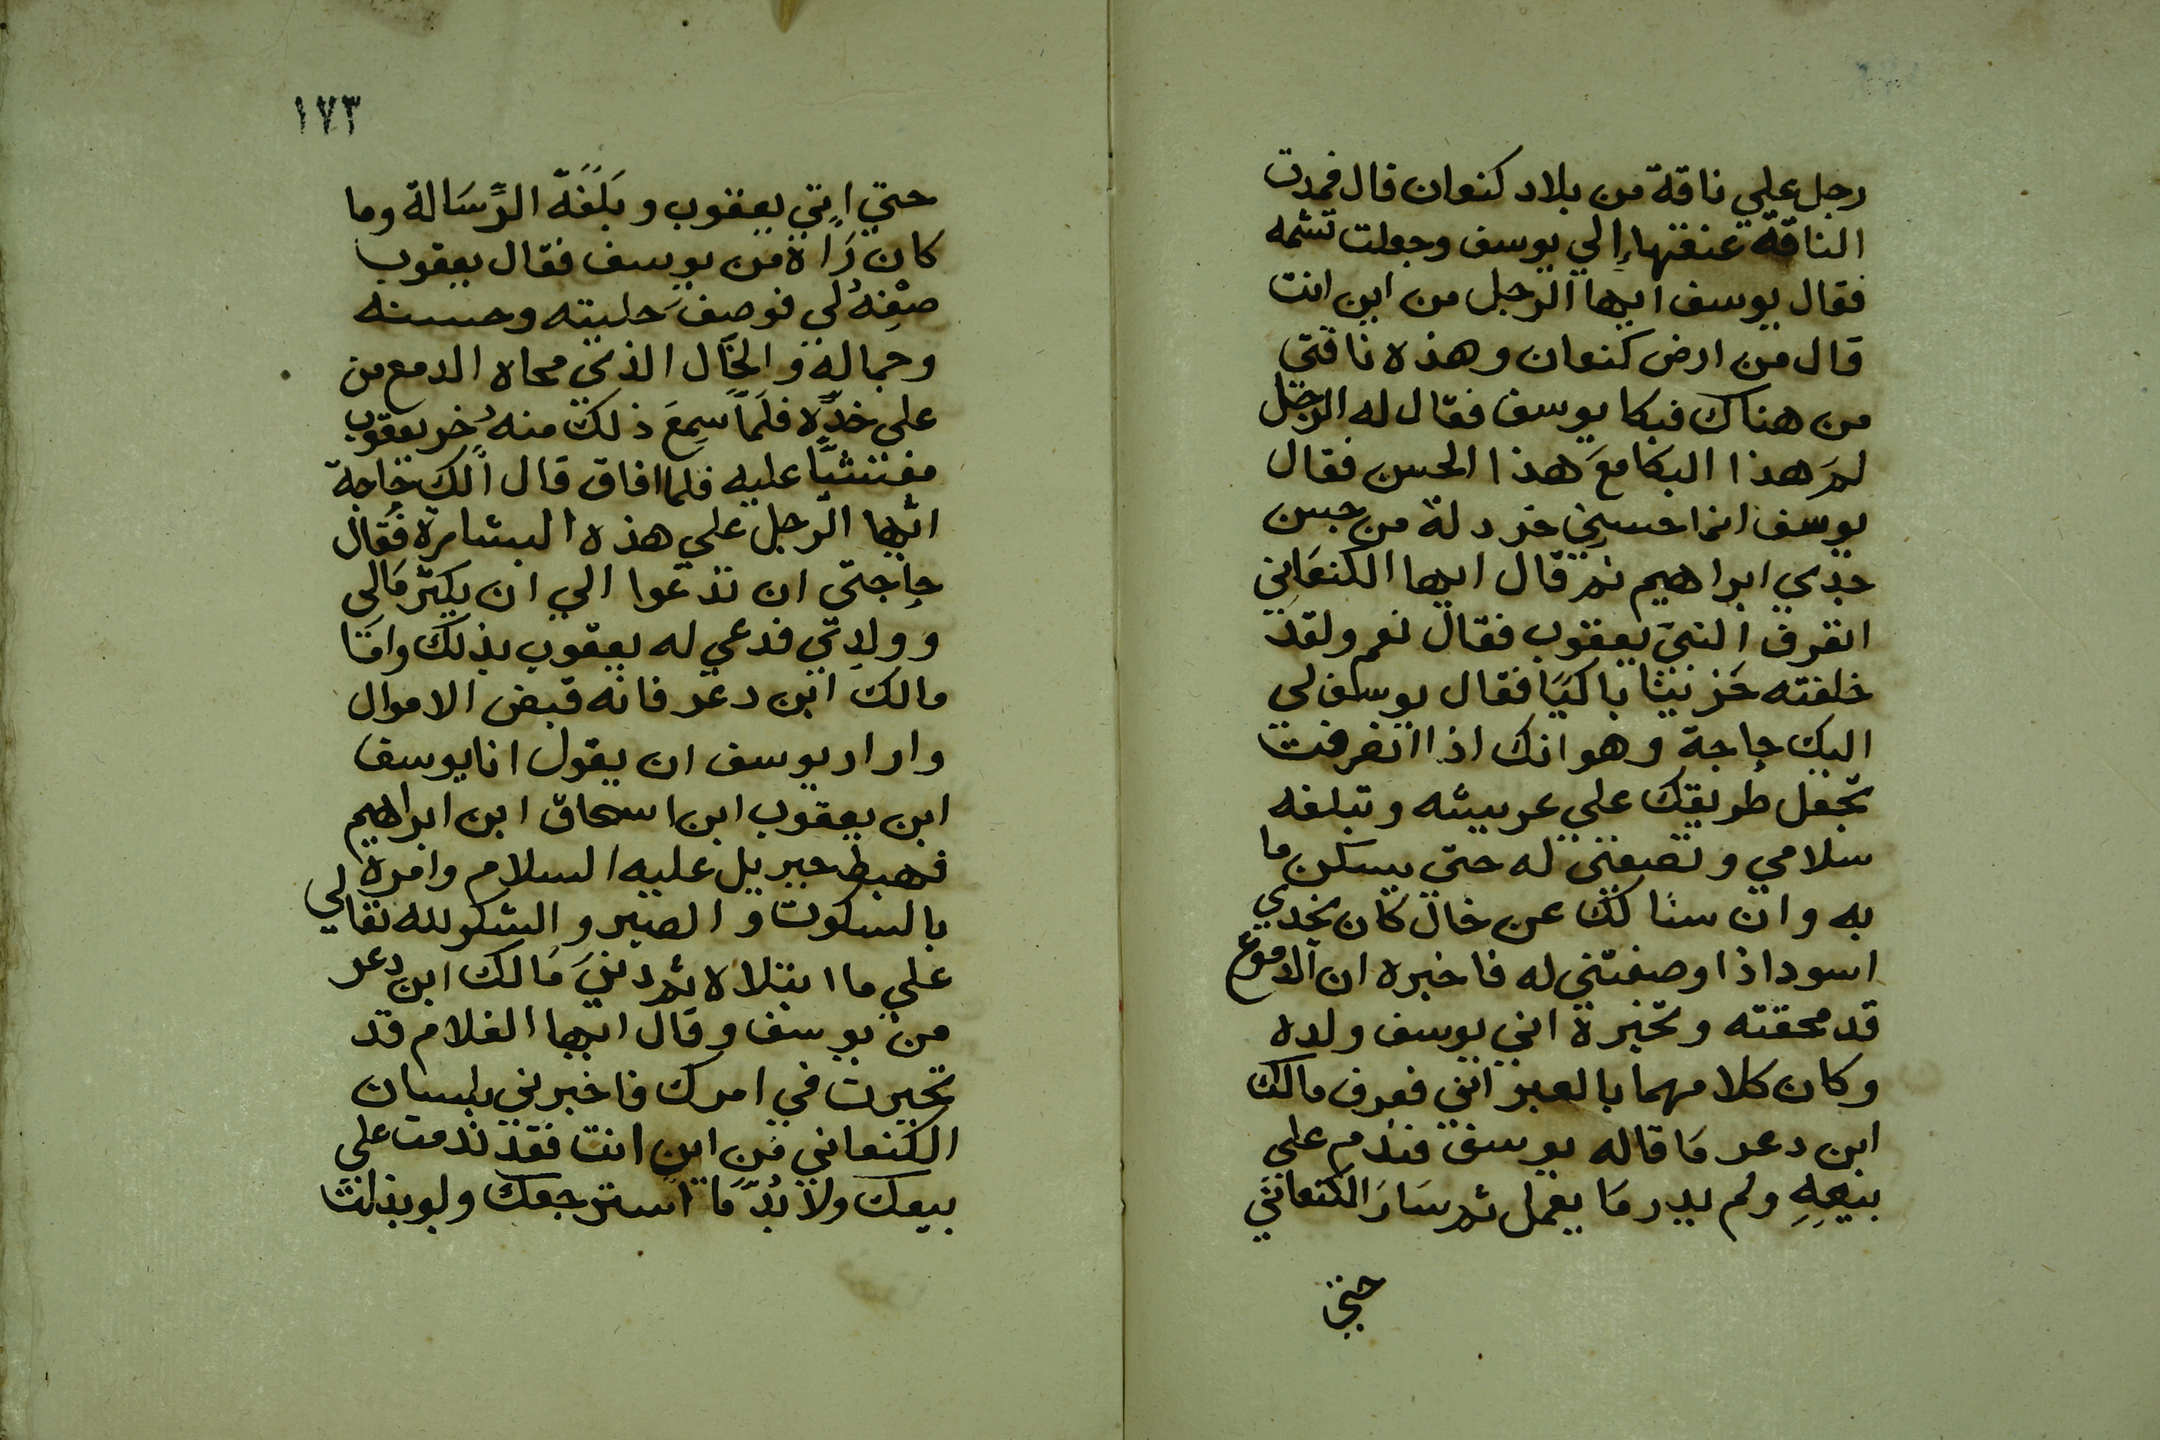 رجل علي ناقة من بلاد كنعان قال فمدت
الناقة عنقها إلي يوسف وجعلت تشمه
فقال يوسف ايها الرجل من اين انت
قال من ارض كنعان وهذه ناقتي
من هناك فبكا يوسف فقال له الرجل
لم هذا البكا مع هذا الحسن فقال
يوسف انما حسني خردلة من حسن
جدي ابراهيم ثم قال ايها الكنعاني
اتعرف النبي يعقوب فقال نعم ولقد
خلفته حزينا باكيا فقال يوسف لي
اليك حاجة وهو انك اذا انصرفت
تجعل طريقك علي عريشه وتبلغه
سلامي وتصفني له حتي يسكن ما
به وان سالك عن خال كان بخدي
اسود اذا وصفتني له فاخبره ان الدموع
قد محقته وتخبره اني يوسف ولده
وكان كلامهما بالعبراني فعرف مالك
ابن دعر ما قاله يوسف فندم علي
بيعه ولم يدر ما يعمل ثم سار الكنعاني
حتي
١٧٣
حتي اتي يعقوب وبلغه الرسالة وما
كان راه من يوسف فقال يعقوب
صفه لي فوصف حليته وحسنه
وجماله والخال الذي محاه الدمع من
علي خده فلما سمع ذلك منه خر يعقوب
مغشيا عليه فلما افاق قال الك حاجة
ايها الرجل علي هذه البشارة فقال
حاجتي ان تدعوا الي ان يكثر مالي
وولدي فدعي له يعقوب بذلك واما
مالك ابن دعر فانه قبض الاموال
واراد يوسف ان يقول انا يوسف
ابن يعقوب ابن اسحاق ابن ابراهيم
فهبط جبريل عليه السلام وامره
بالسكوت والصبر والشكر لله تعالي
علي ما ابتلاه ثم دني مالك ابن دعر
من يوسف وقال ايها الغلام قد
تحيرت في امرك فاخبرني بلسان
الكنعاني من اين انت فقد ندمت علي
بيعك ولا بد ما استرجعك ولو بذلت